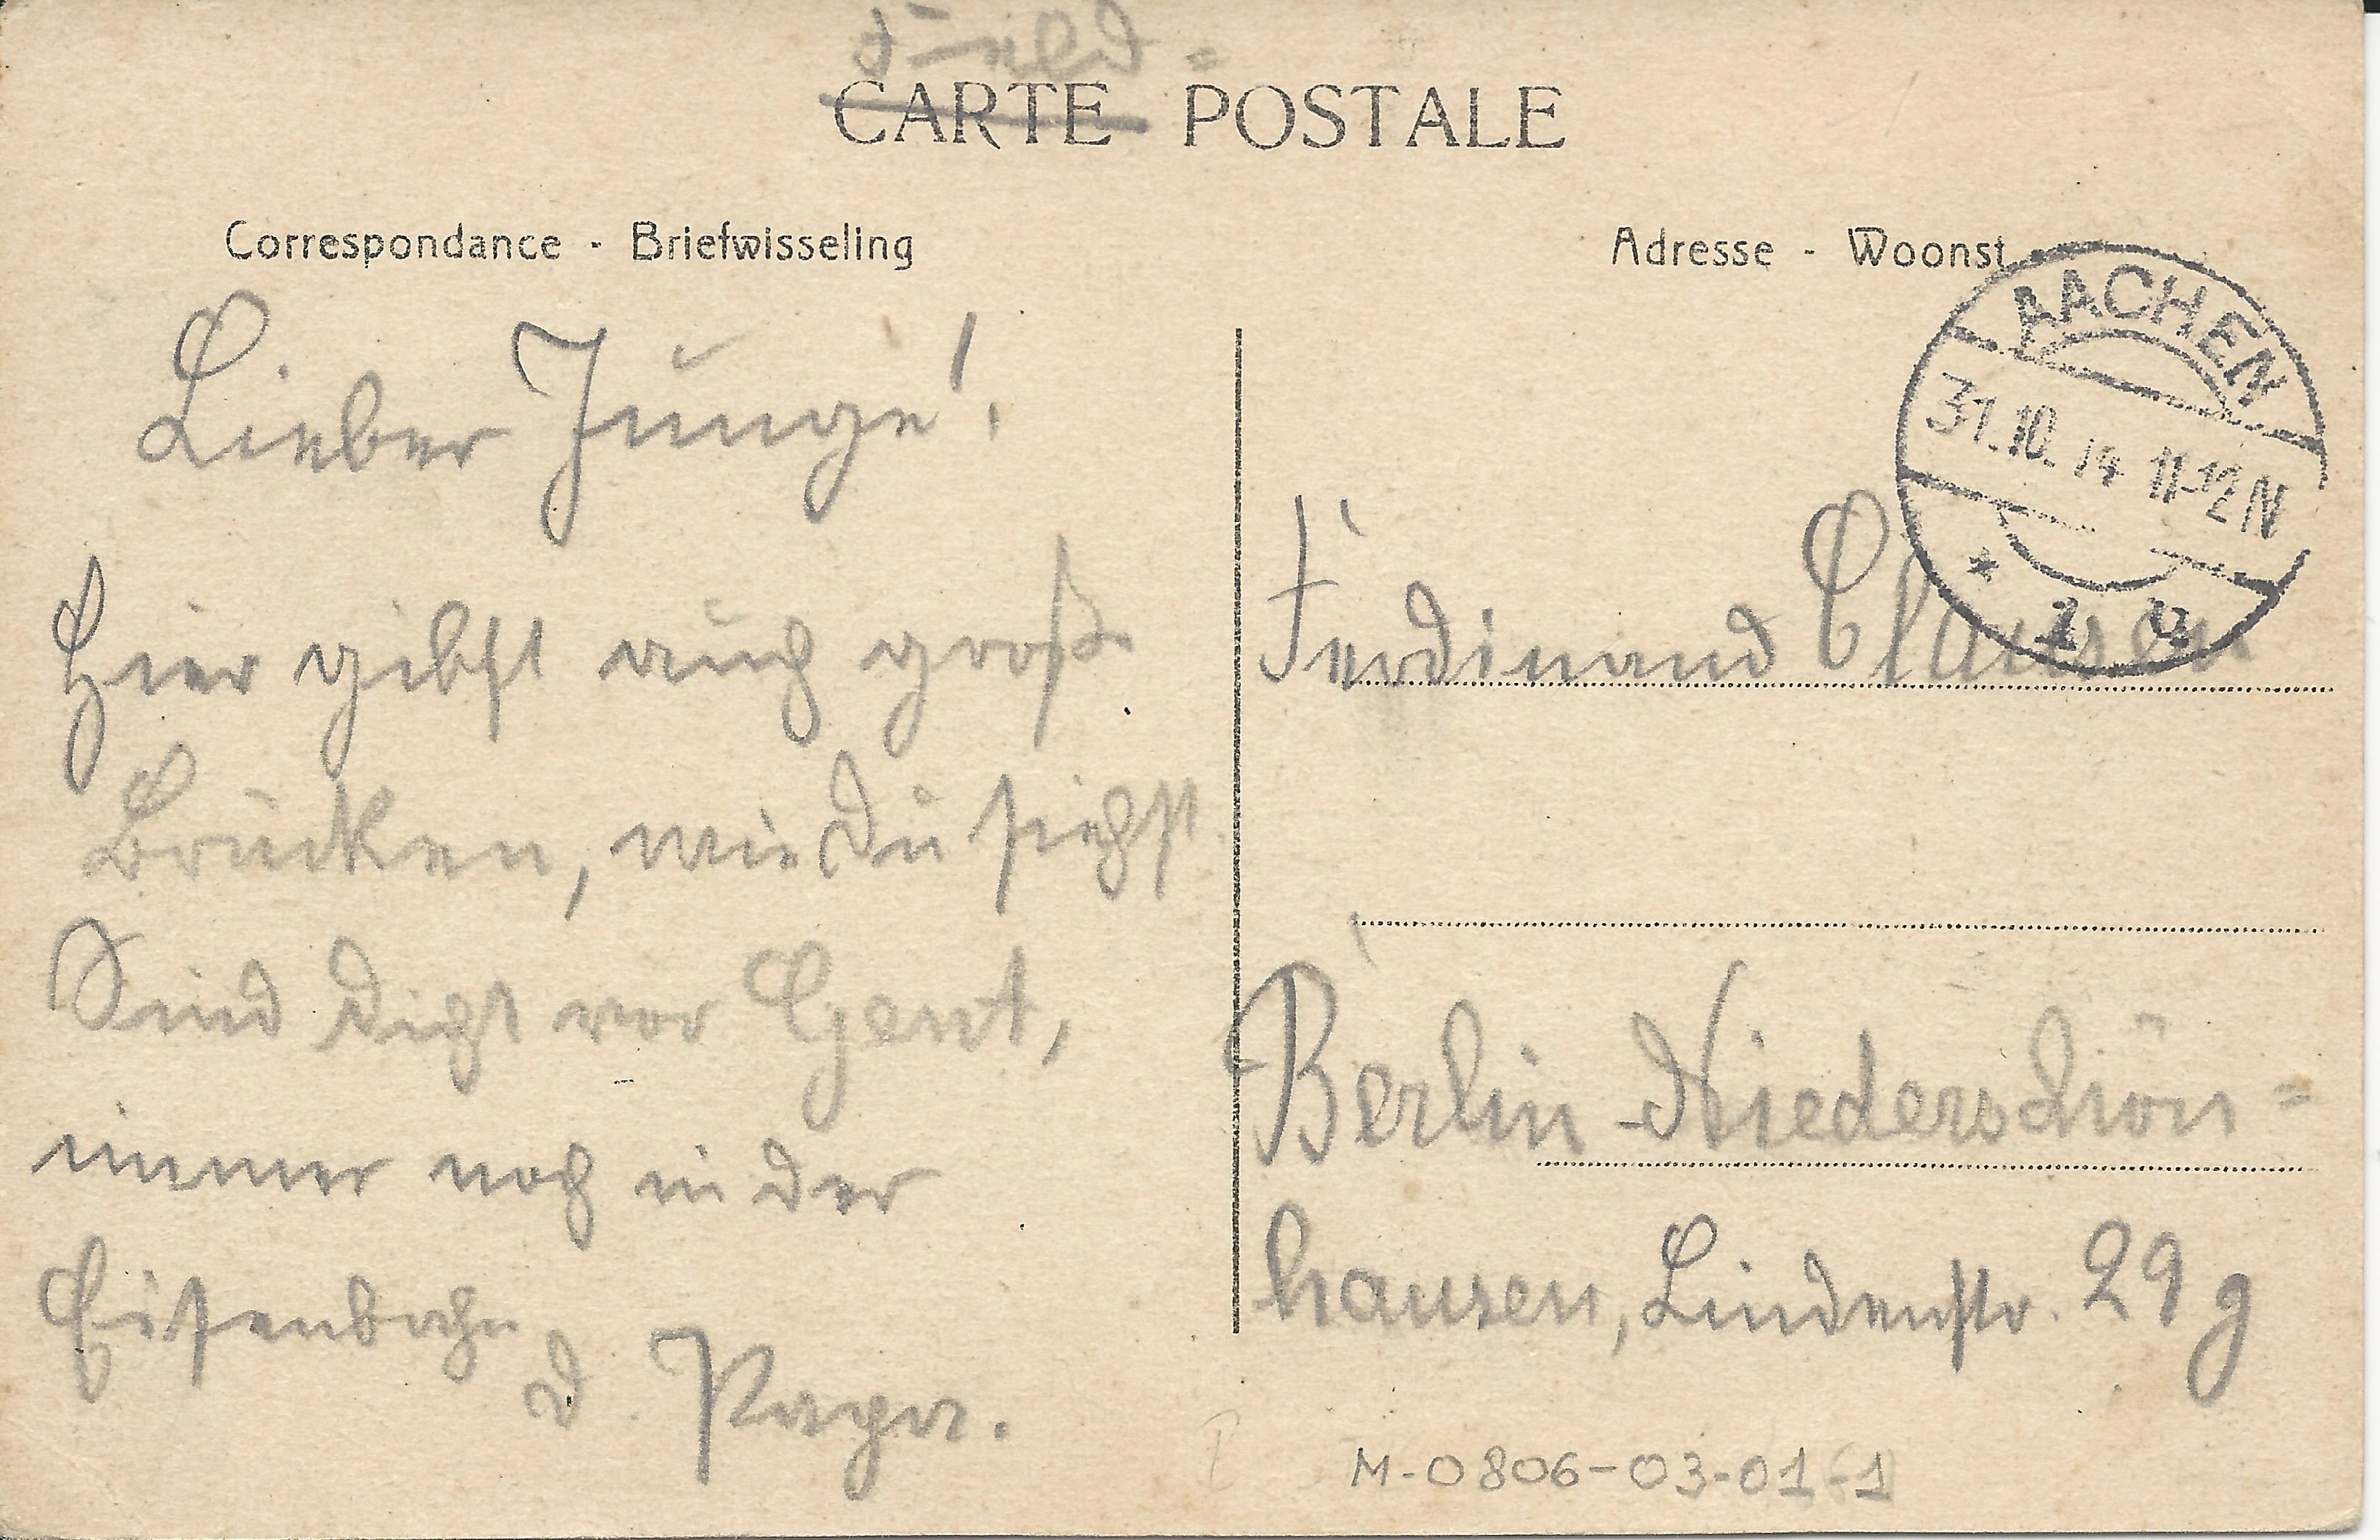 Feld=
CARTE POSTALE
Correspondance - Briefwisseling
Adresse - Woonst
AACHEN
31.10.14 11-12N
* 1
Lieber Junge!
Hier gibst auch groß
Brücken, wie Du siehst.
Sind dicht vor Gent,
immer noch in der
Eisenbahn
D. Papa.
Ferdinand Clausen
Berlin-Niederschön=
hausen, Lindenstr. 29g
M-0806-03-01-1